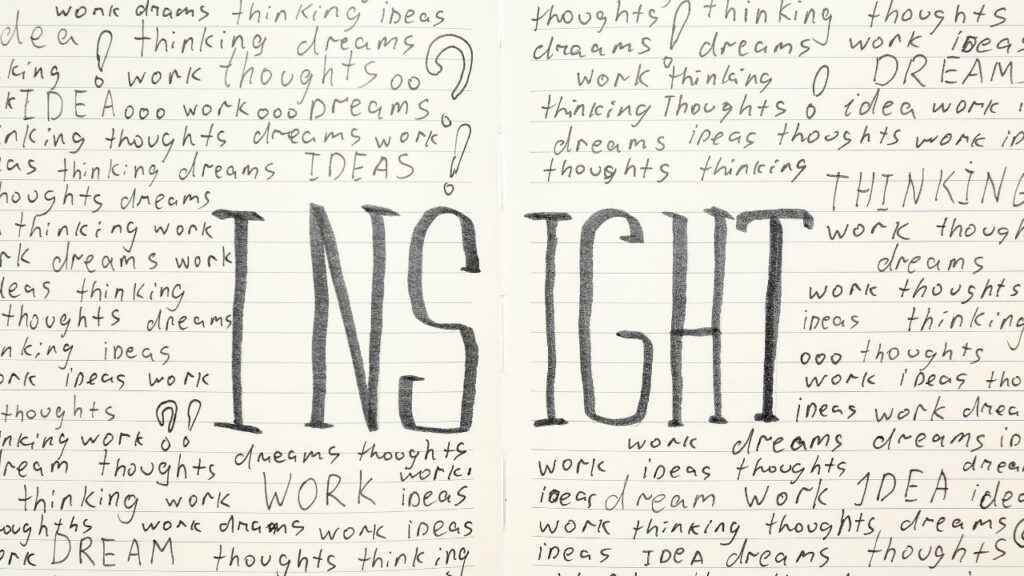 work drams thinking ideas
dea ! thinking dreams
king ! work thoughts oo ?
k IDEA ooo work ooo Dreams
inking thoughts dreams work !
eas thinking dreams IDEAS
houghts dreams
thinking work
rk dreams work
deas thinking
thoughts dreams
nking ideas
ork ideas work
thoughts ?!
inking work
dreams thoughts
ream thoughts work.
thinking work WORK ideas
oughths work drams work ideas
ork DREAM thoughts thinking
INSIGHT
thoughts ! thinking thoughts
draams dreams work ideas
work thinking DREAM
thinking Thoughts idea work
dreams ideas thoughts work id
thoughts thinking
THINKING
work though
dreams
work thoughts
ideas thinking
ooo thoughts
work ideas tho
ideas work drea
work dreams dreams id
work ideas thoughts dream
ideas dream work IDEA idea
work thinking thoughts dreams
ideas IDEA dreams thoughts